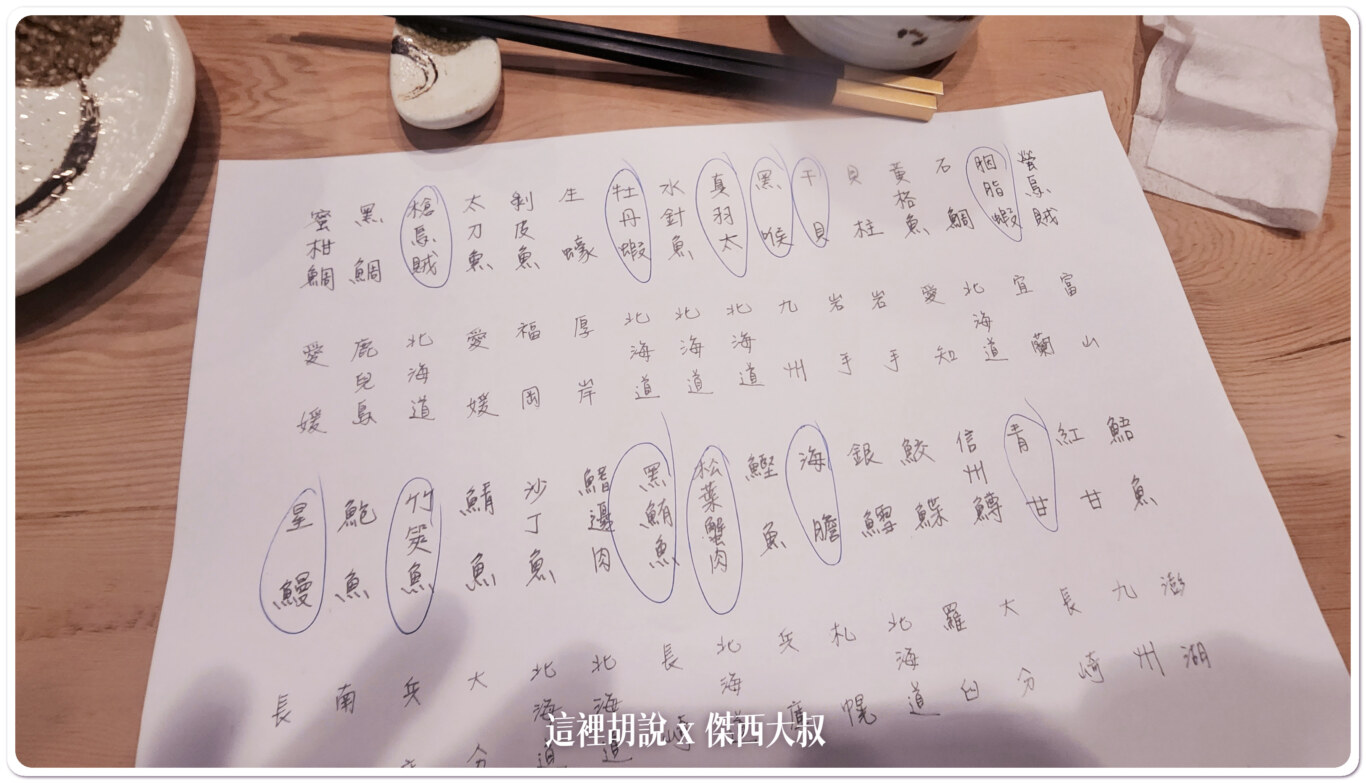 螢烏賊
胭脂蝦
石鯛
黃格魚
貝柱
干貝
黑喉
真羽太
水針魚
牡丹蝦
生蠔
剝皮魚
太刀魚
槍烏賊
黑鯛
蜜柑鯛
富山
宜蘭
北海道
愛知
岩手
岩手
九州
北海道
北海道
北海道
厚岸
福岡
愛媛
北海道
鹿兒島
愛媛
魚
紅甘
青甘
信州鱒
鮫鰈
銀鱈
海膽
鰹魚
松葉蟹肉
黑鮪魚
鰭邊肉
沙丁魚
鯖魚
竹筴魚
鮑魚
星鰻
澎湖
九州
長崎
大分
羅臼
北海道
札幌
兵庫
北海道
長崎
北海道
北海道
大分
兵
南
長
這裡胡說 x 傑西大叔